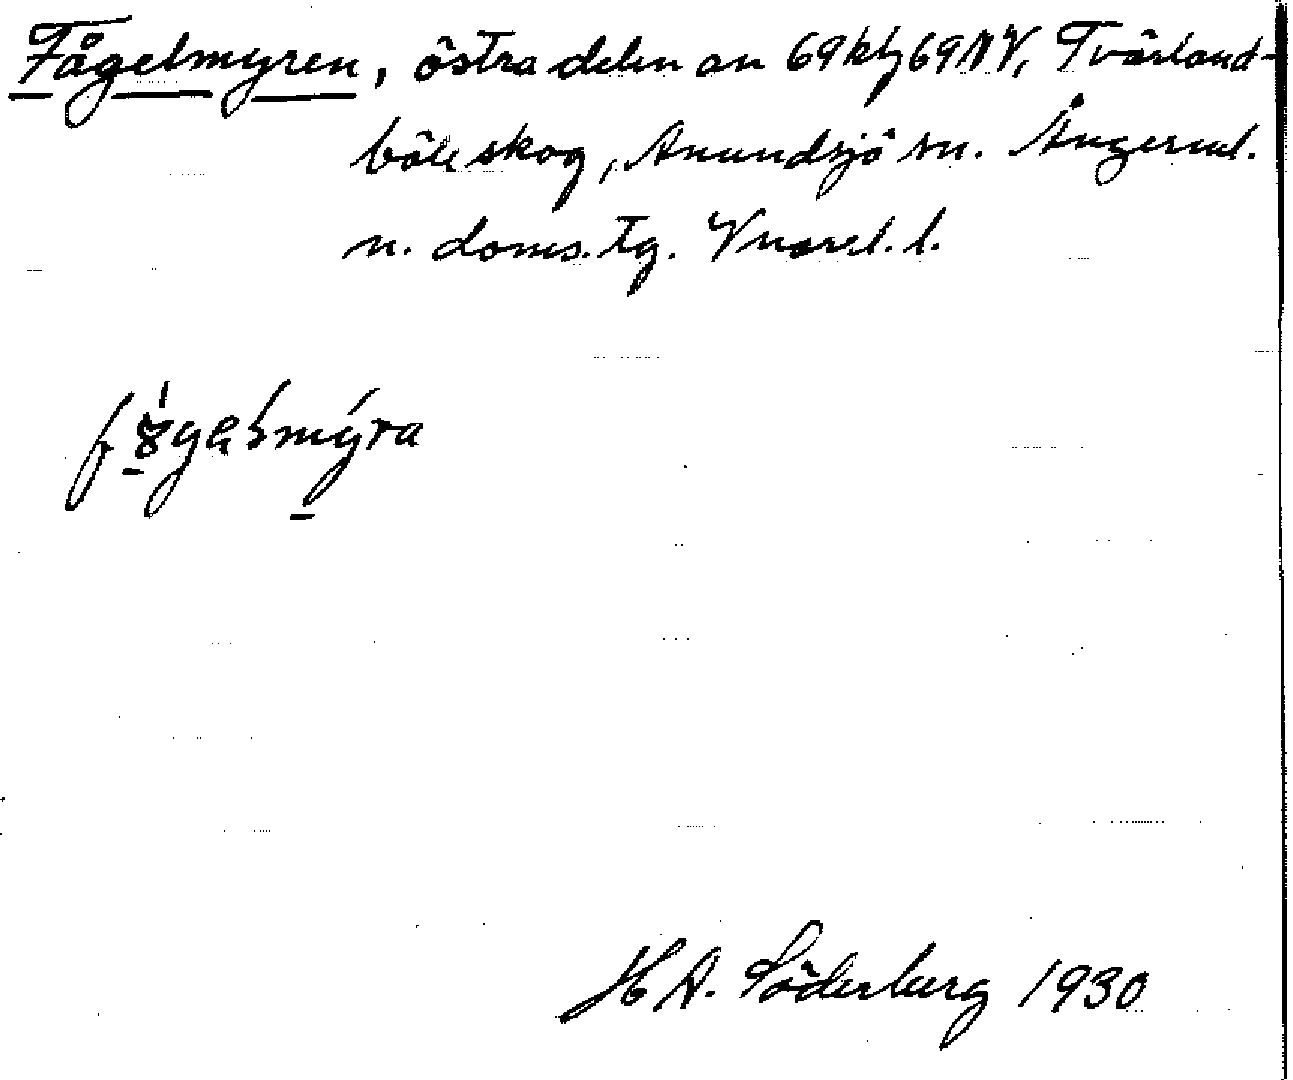 Fågelmyren, östra delen av 69 kbg 69 NV, Tvärland-
böle skog, Anundsjö sn. Ångerml.
n. doms. tg. Vnorrl. l.
H A. Söderberg 1930